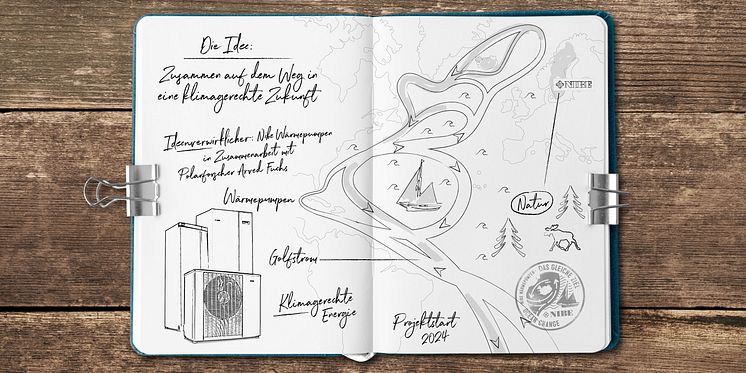 Die Idee:
Zusammen auf dem Weg in
eine klimagerechte Zukunft
Ideenverwirklicher: Nibe Wärmepumpen
in Zusammenarbeit mit
Polarforscher Arved Fuchs
Wärmepumpen
Golfstrom
Klimagerechte
Energie
Projektstart
2024
NIBE
Natur
DAS GLEICHE ZIEL
OCEAN CHANGE
NIBE